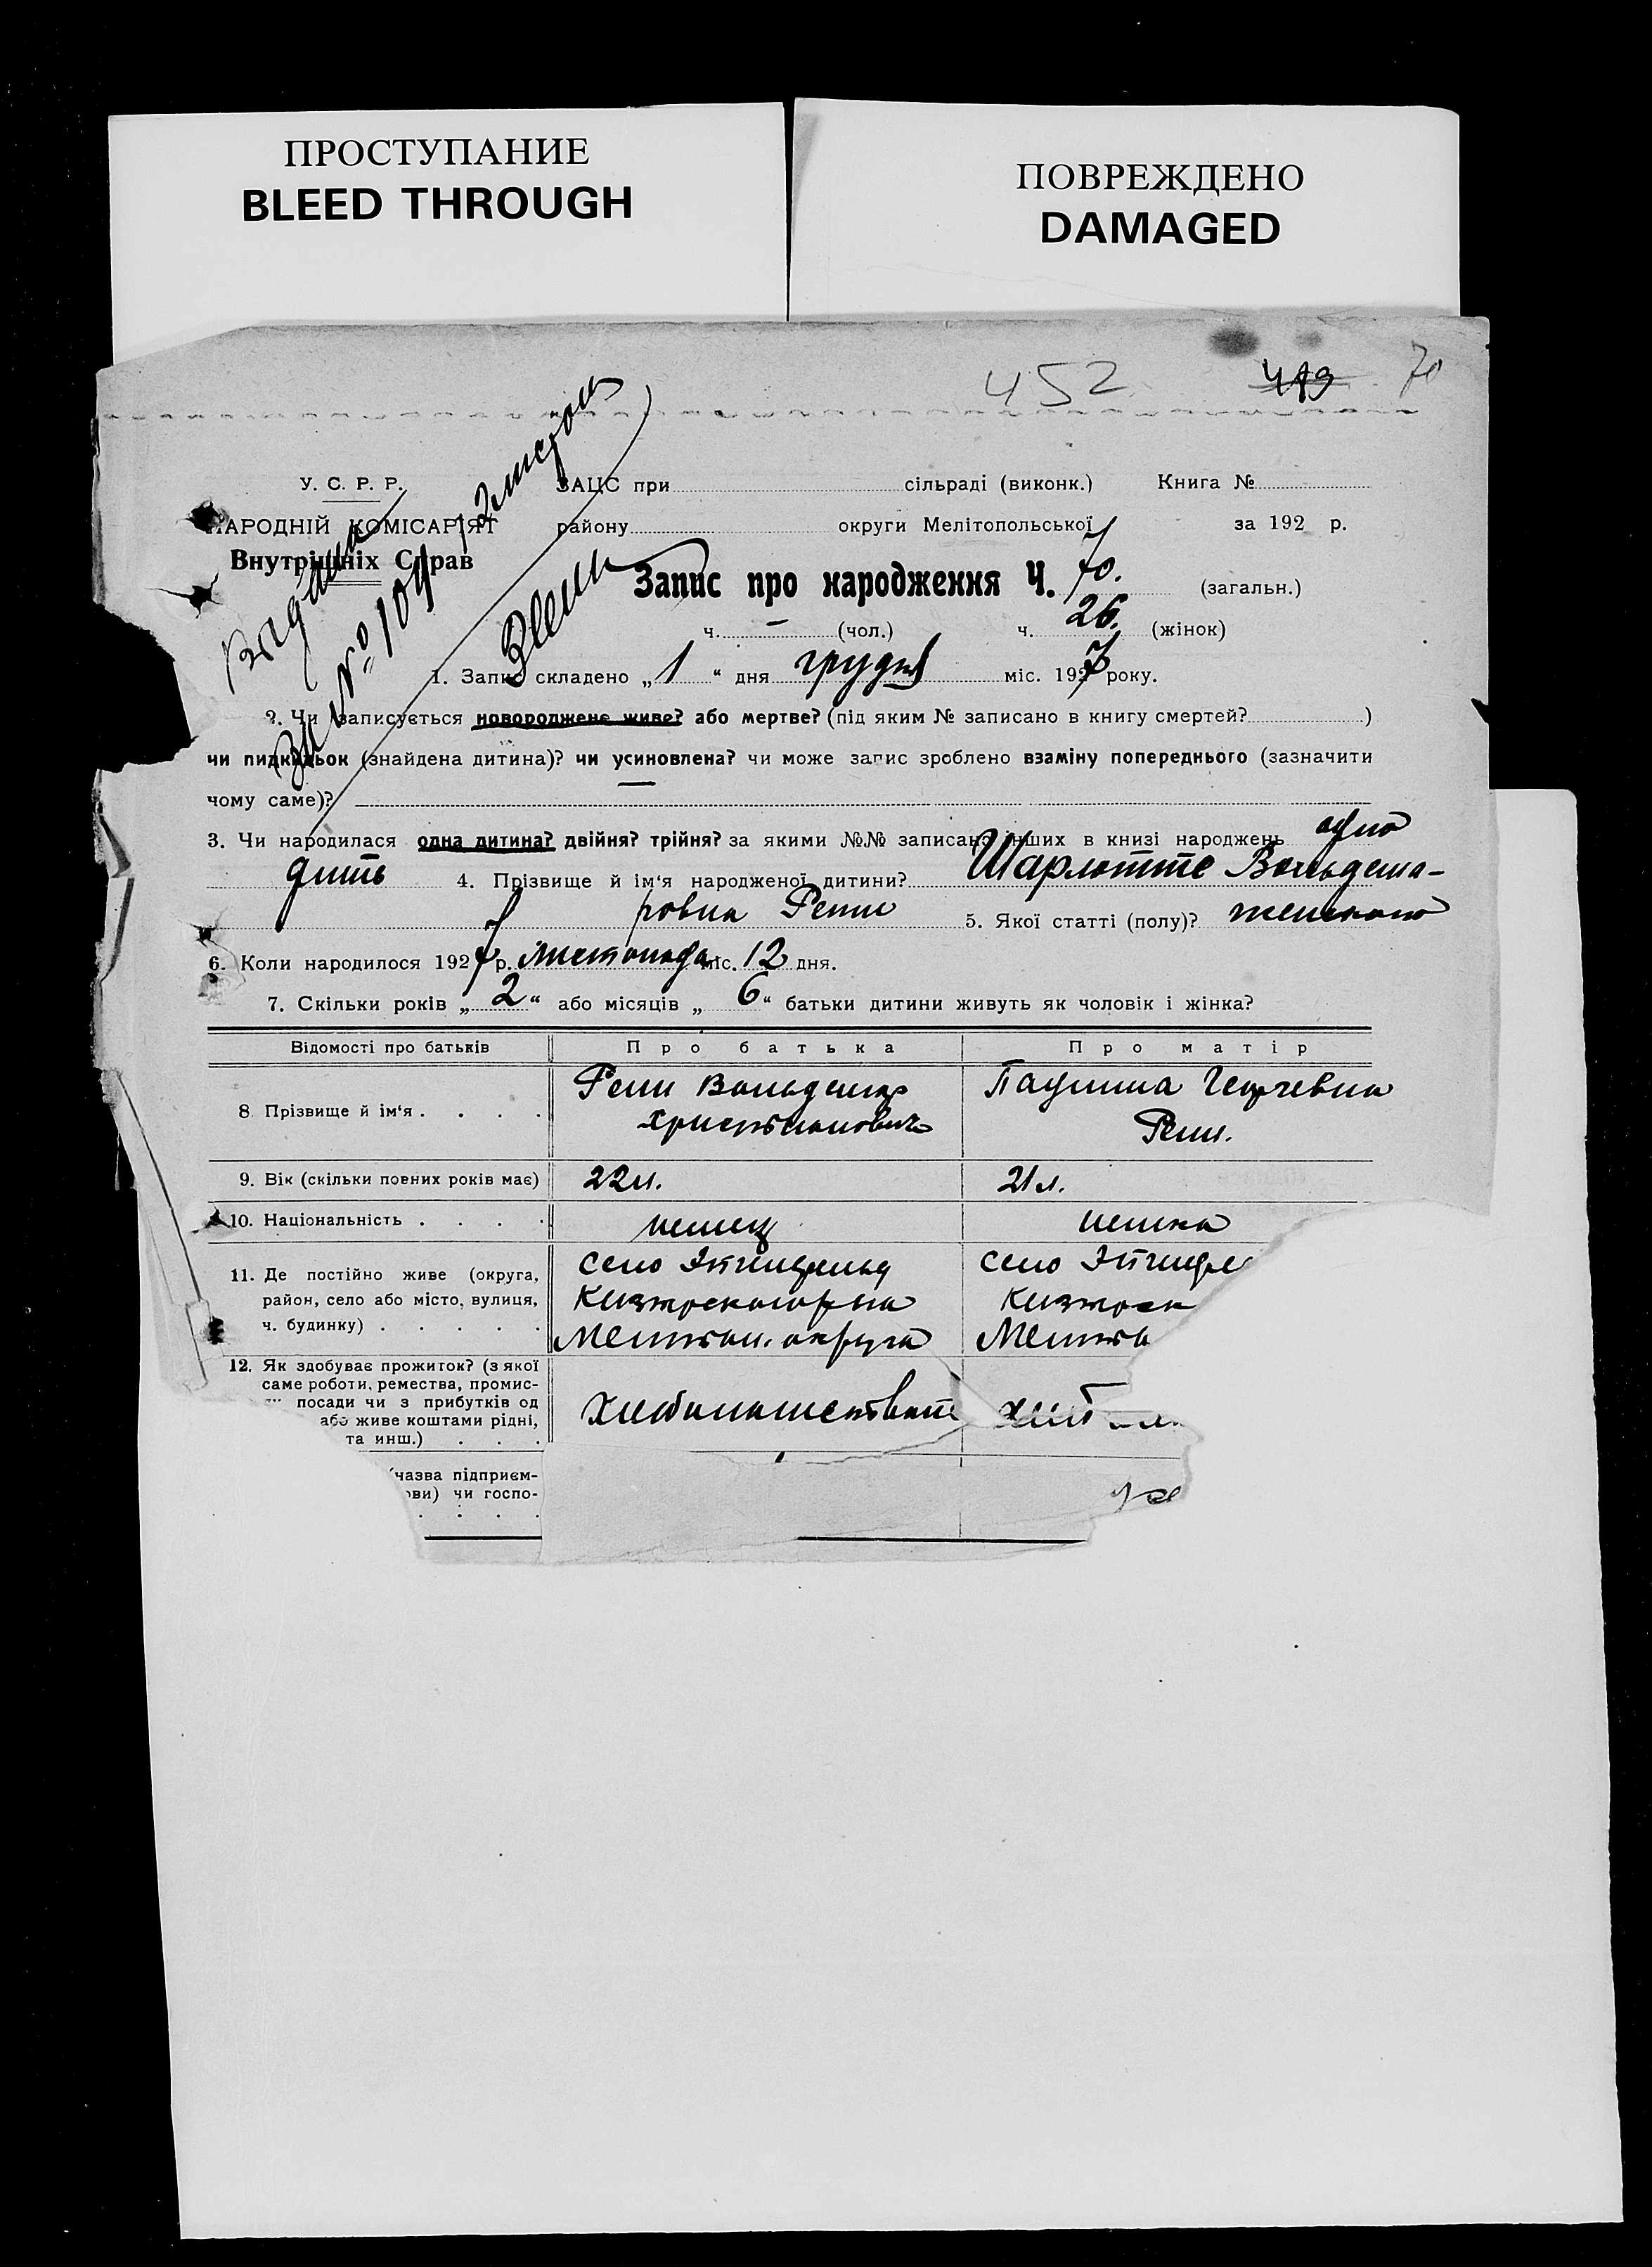 ПРОСТУПАНИЕ
BLEED THROUGH
ПОВРЕЖДЕНО
DAMAGED
452 70
У. С. Р. Р.
НАРОДНІЙ КОМІСАРІЯТ
Внутрішніх Справ
ЗАЦС при сільраді (виконк.) Книга №
району округи Мелітопольської за 192 р.
Запис про народження Ч. 70. (загальн.)
ч. — (чол.) ч. 26. (жінок)
Выдана
№ 109
1. Запис складено „ 1 “ дня грудня міс. 1927 року.
2. Чи записується новороджене живе? або мертве? (під яким № записано в книгу смертей? )
чи пидкидьок (знайдена дитина)? чи усиновлена? чи може запис зроблено взаміну попереднього (зазначити
чому саме)?
3. Чи народилася одна дитина? двійня? трійня? за якими №№ записано інших в книзі народжень одно
дить 4. Прізвище й ім‘я народженої дитини? Шарлотте Вольдема-
ровна Репп 5. Якої статті (полу)? женского
6. Коли народилося 1927 р. Листопада міс. 12 дня.
7. Скільки років „ 2 “ або місяців „ 6 “ батьки дитини живуть як чоловік і жінка?
Відомості про батьків Про батька Про матір
8. Прізвище й ім‘я . . . . Репп Вольдемар Паулина Георгевна
Християнович Репп.
9. Вік (скільки повних років має) 22 л. 21 л.
10. Національність . . . . немец немка
11. Де постійно живе (округа, село село
район, село або місто, вулиця,
ч. будинку) . . . . . Мелитоп. округа Мелито
12. Як здобуває прожиток? (з якої
саме роботи, ремества, промис-
посади чи з прибутків од
або живе коштами рідні,
та инш.) . . .
(назва підприєм-
ови) чи госпо-
. . . .